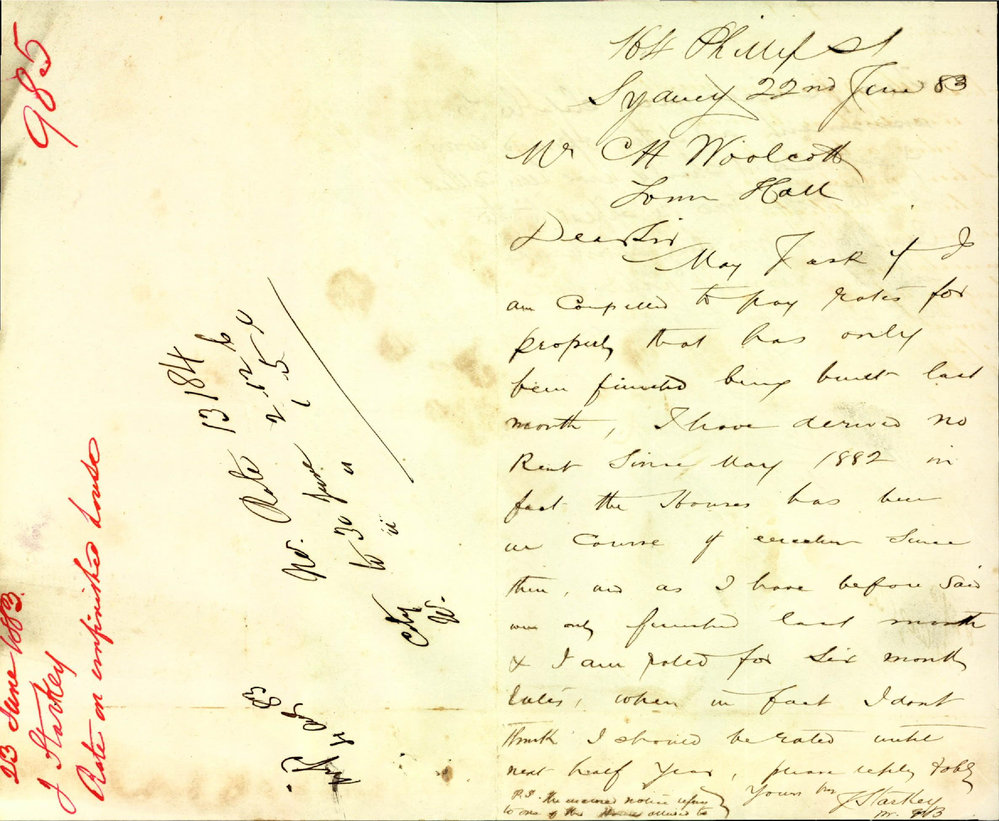 164 Phillip St
Sydney 22nd June 83
Mr CH Woolcott
Town Hall
Dear Sir
May I ask if I
am Compelled to pay rates for
property that has only
been finished being built last
month, I have derived no
Rent Since May 1882 in
fact the Houses has been
in Course of erection Since
then, and as I have before Said
was only finished last month
& I am rated for Six month
rates, when in fact I dont
think I should be rated until
next half Year, please reply & obly
Yours
J Starkey
P.S. the notice refers
to one of the Houses allued to
985
23 June 1883
J Starkey
Rate on unfinished house
No. Rate 13184
2 12 6
to 30 June 1 5 0
City
W.